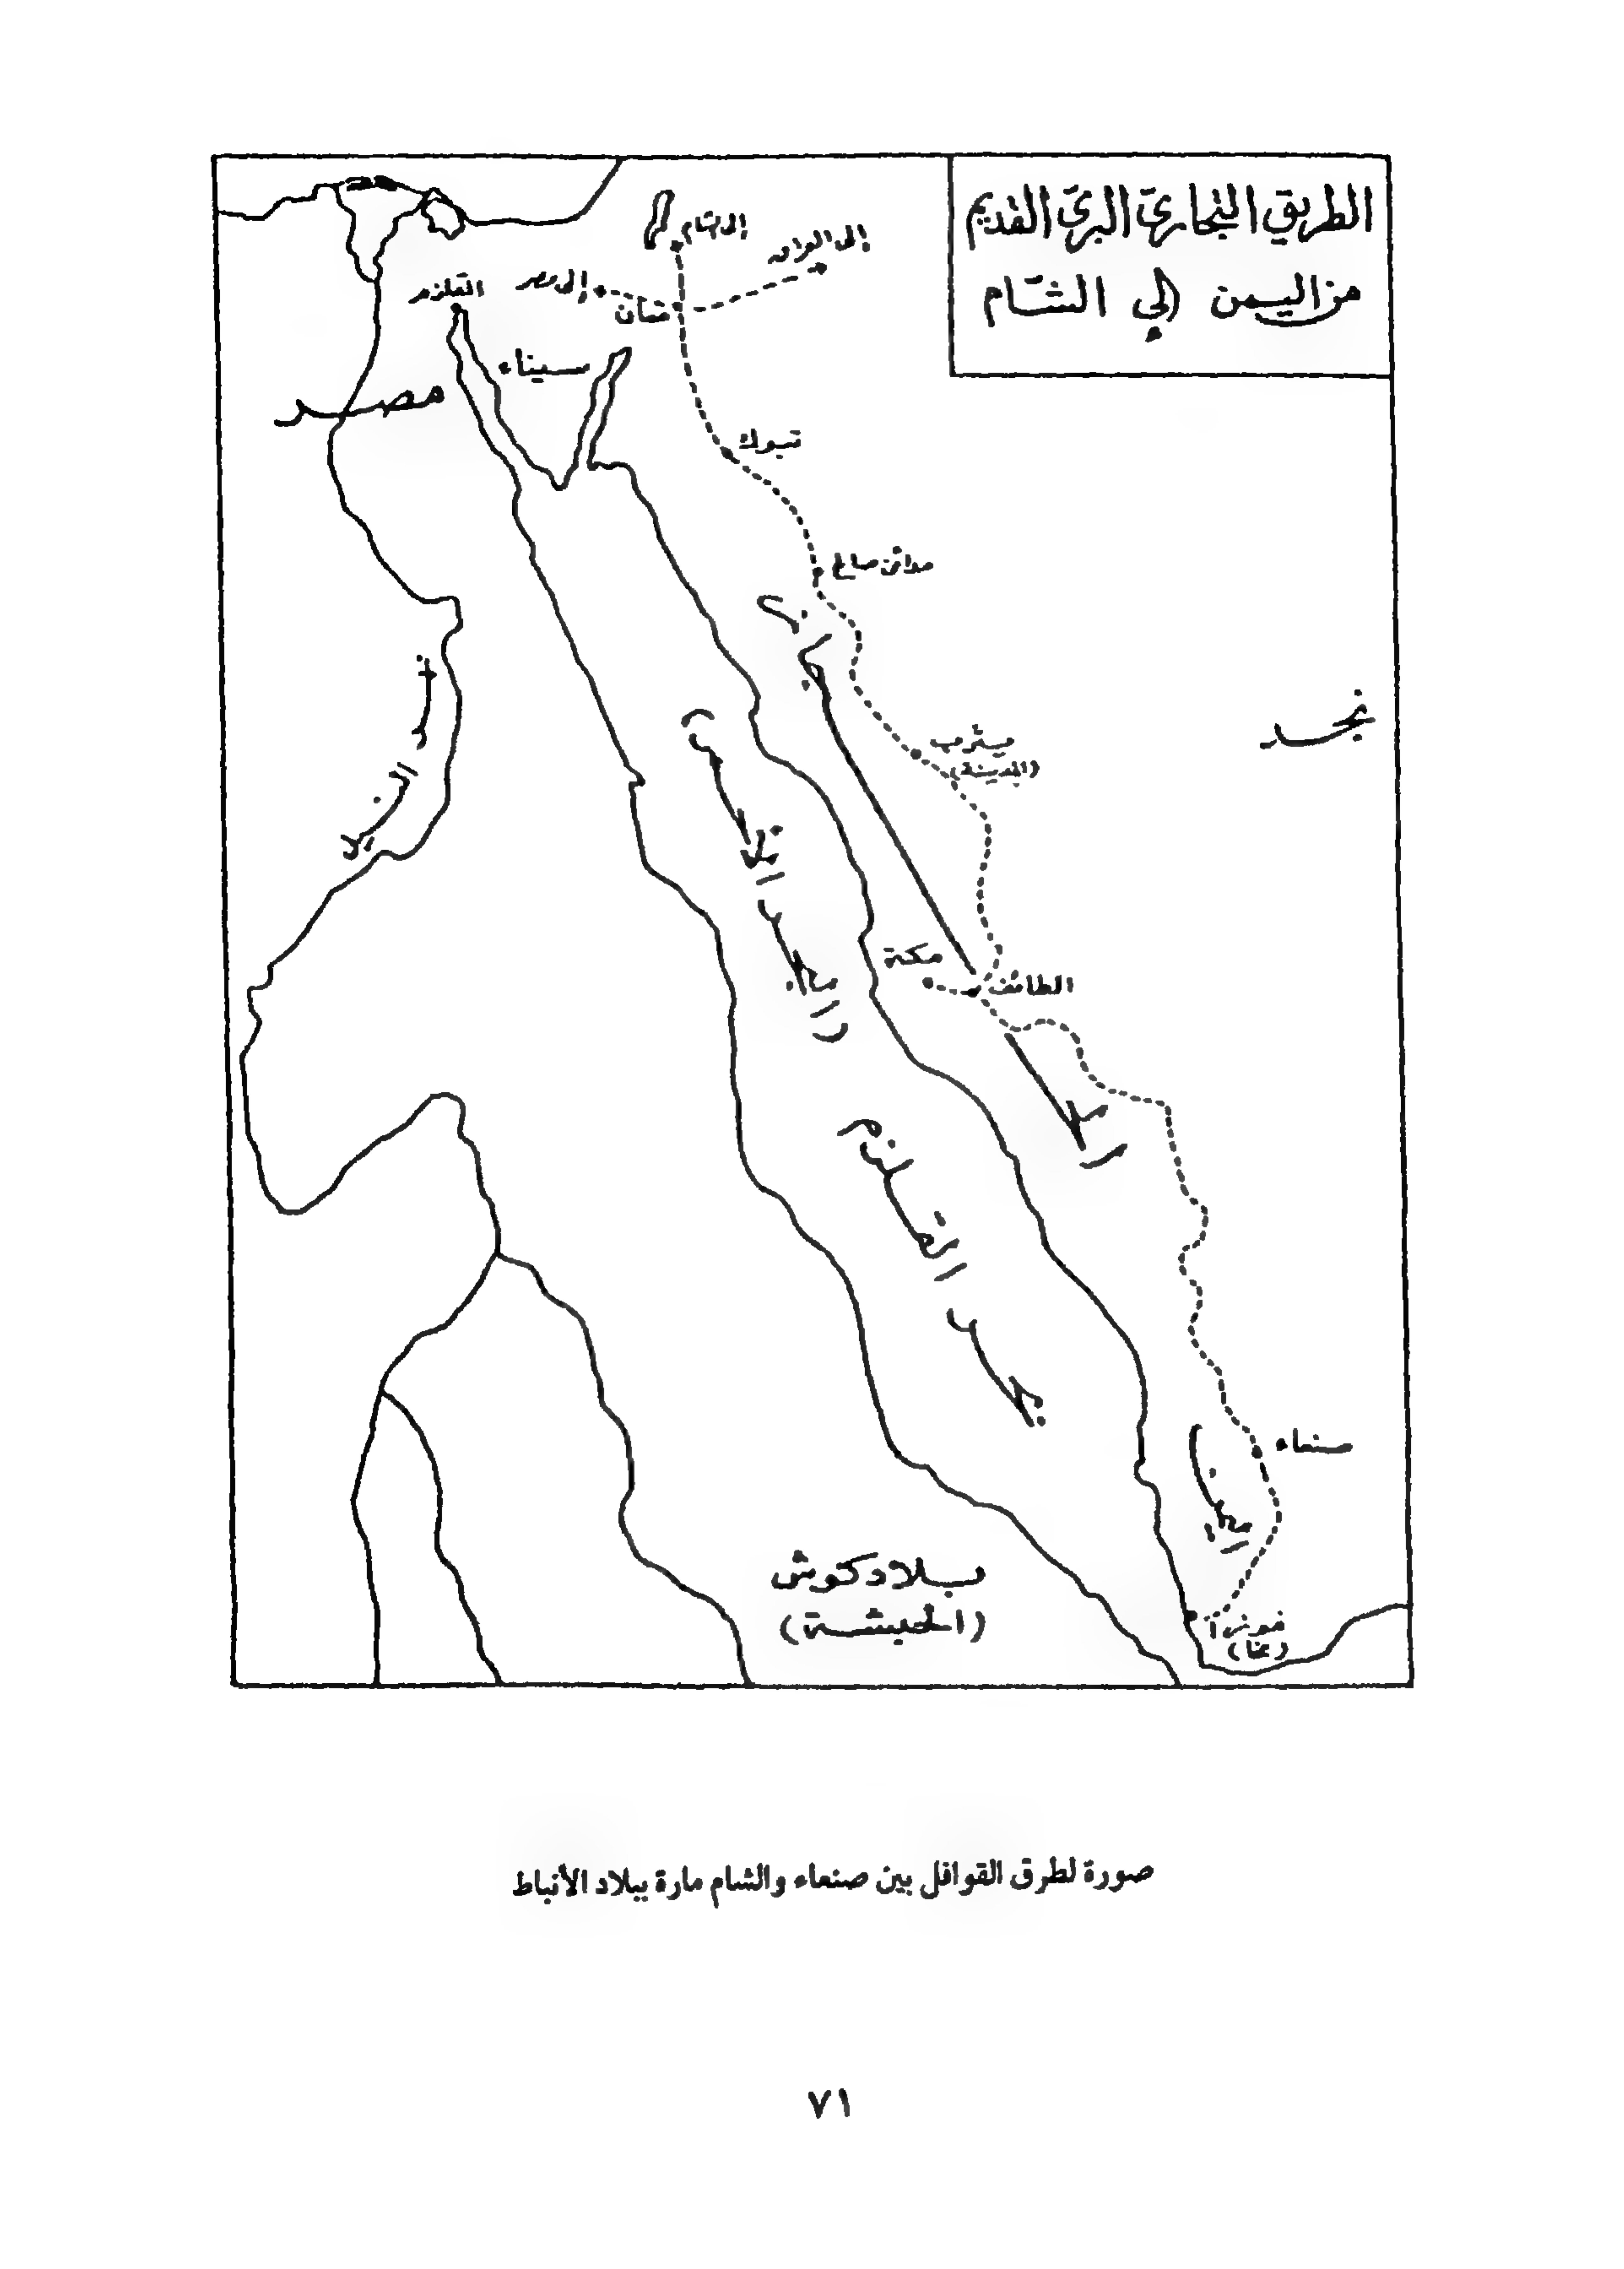 الطريق التجاري البري القديم
من اليمن إلي الشام
إلى الشام
إلى العراق
إلى مصر
معان
القلزم
سيناء
مصر
تبوك
مدائن صالح
نجد
يثرب
(المدينة)
مكة
الطائف
الحجاز
بحر القلزم
صنعاء
اليمن
موزا
(مخا)
بلاد كوش
(الحبشة)
صورة لطرق القوافل بين صنعاء والشام مارة ببلاد الأنباط
٧١